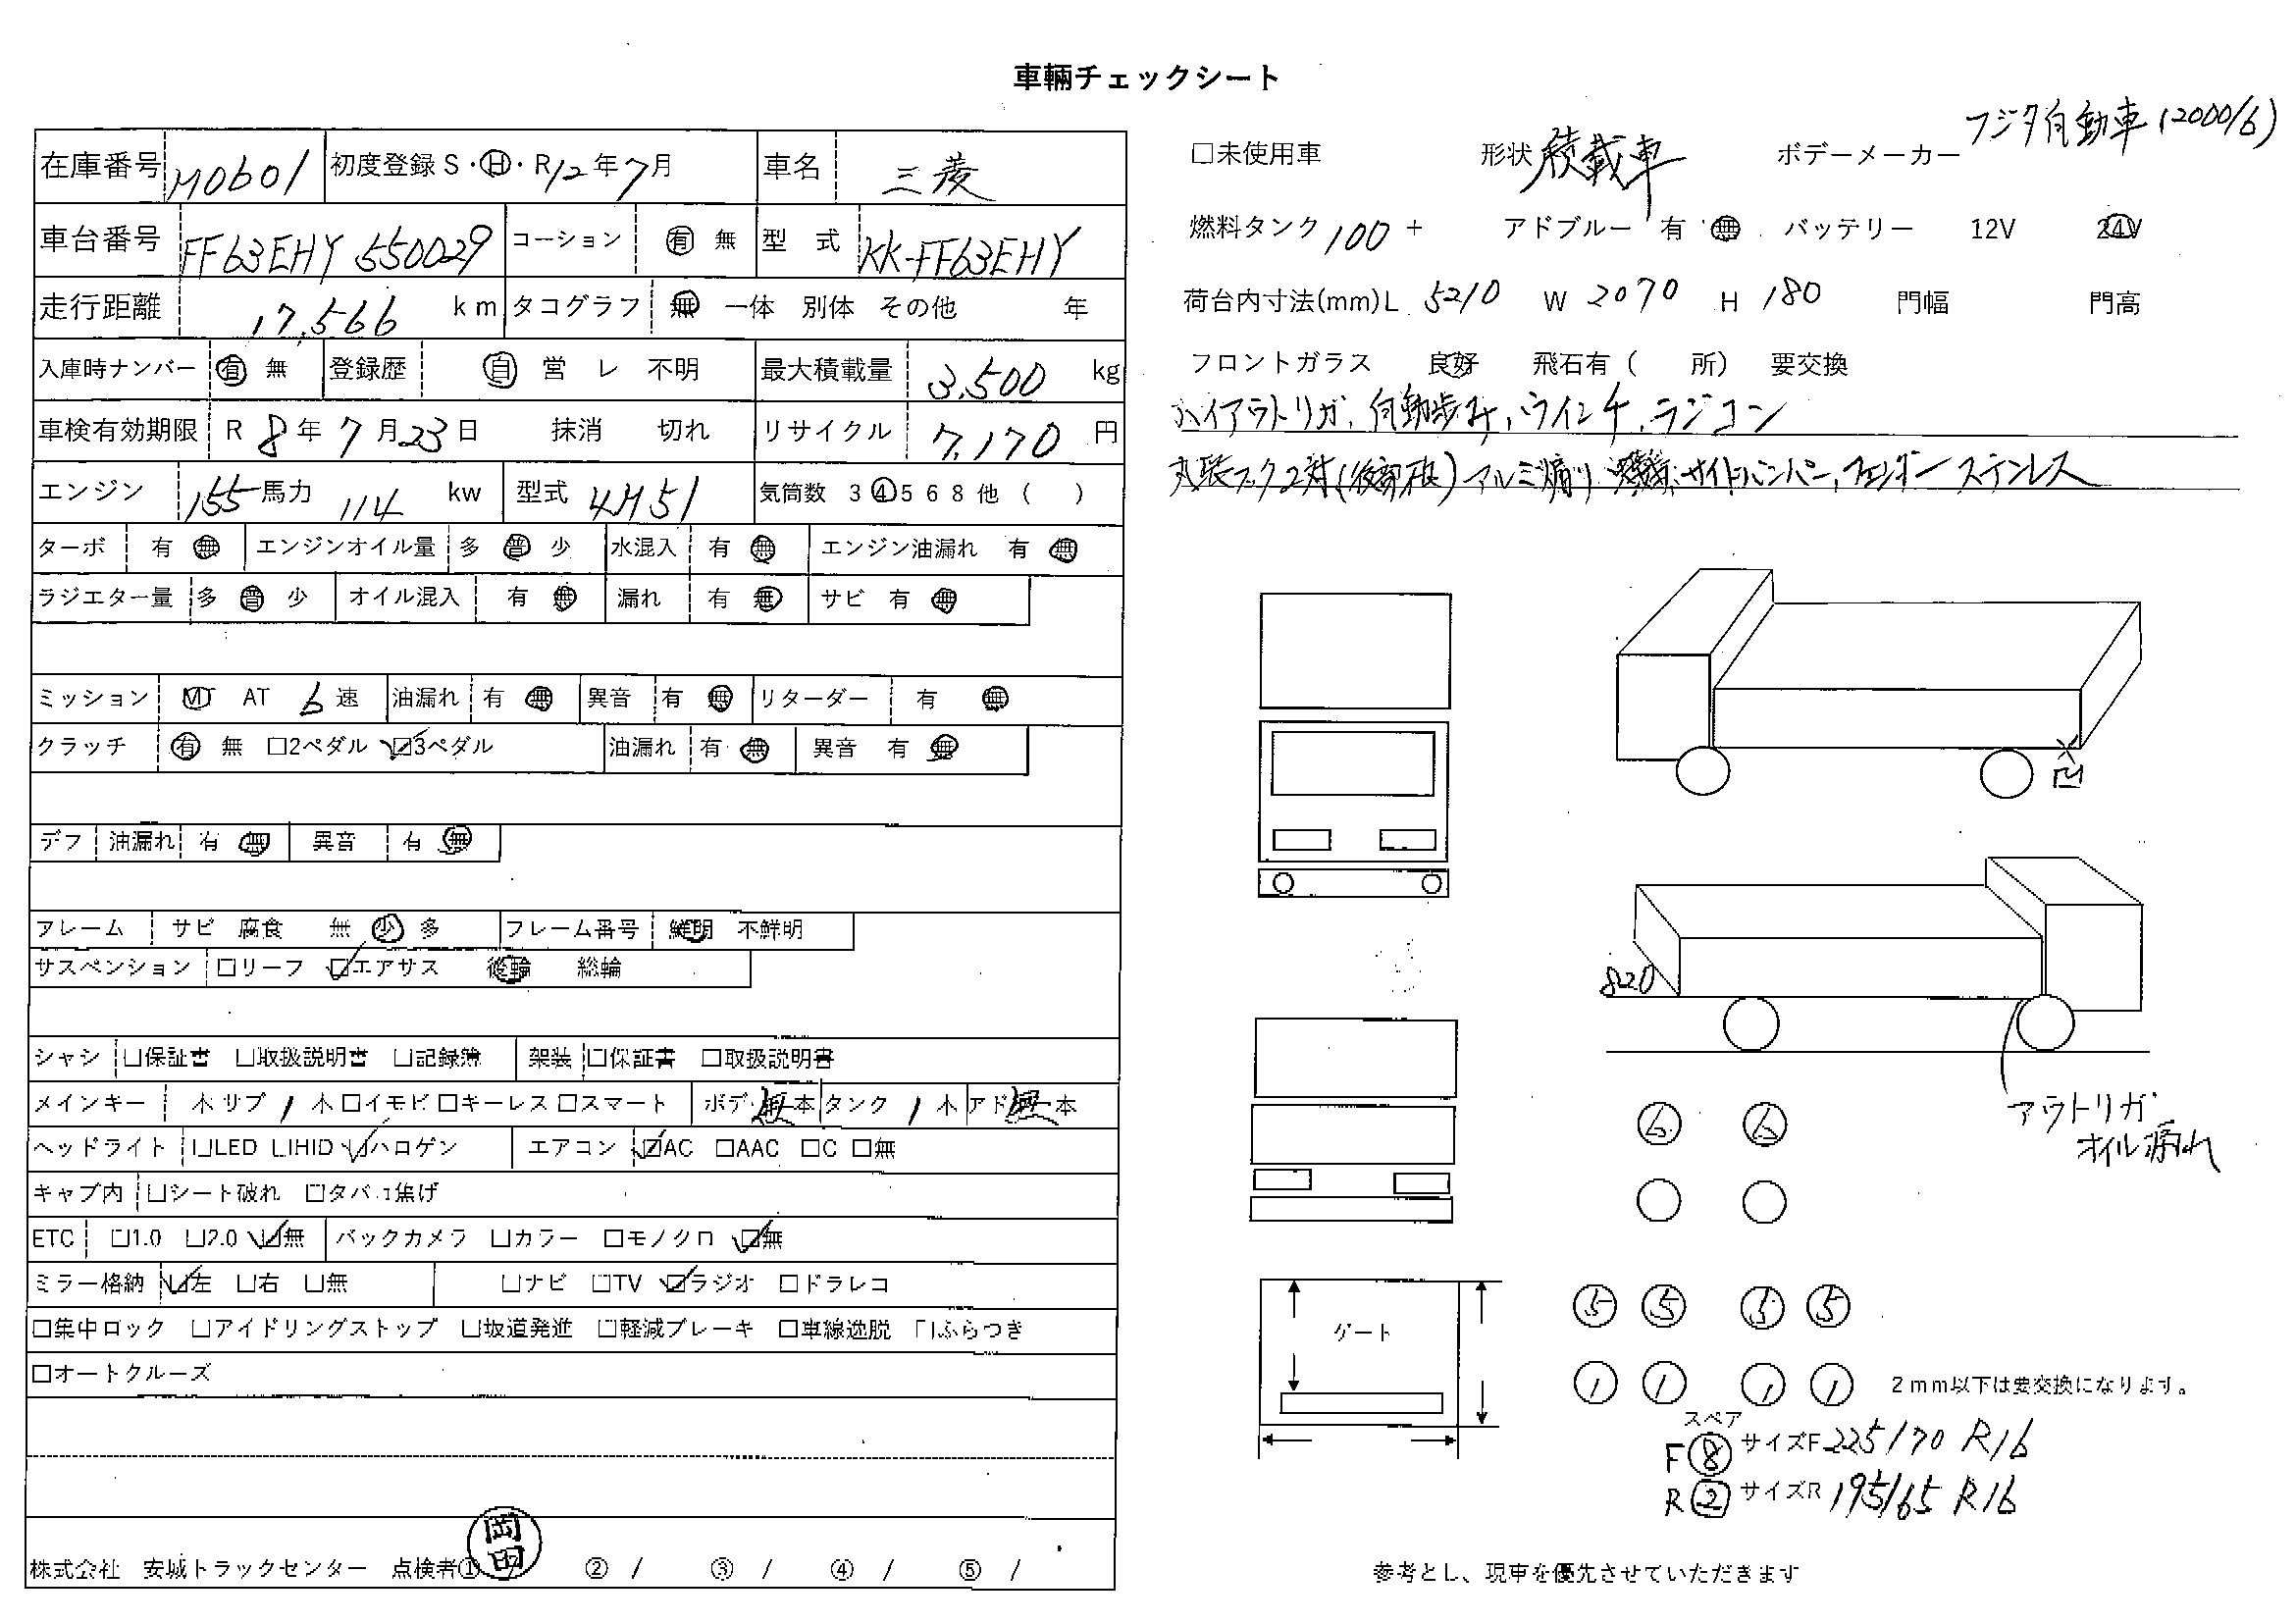 車輛チェックシート
在庫番号 M0601 初度登録 S・H・R 12年 7月 車名 三菱
車台番号 FF63EHY 550029 コーション 有 無 型 式 KK-FF63EHY
走行距離 17,566 km タコグラフ 無 一体 別体 その他 年
入庫時ナンバー 有 無 登録歴 自 営 レ 不明 最大積載量 3,500 kg
車検有効期限 R 8年 7月23日 抹消 切れ リサイクル 7,170 円
エンジン 155馬力 114 kw 型式 4M51 気筒数 3 4 5 6 8 他 ( )
ターボ 有 無 エンジンオイル量 多 普 少 水混入 有 無 エンジン油漏れ 有 無
ラジエター量 多 普 少 オイル混入 有 無 漏れ 有 無 サビ 有 無
ミッション MT AT 6 速 油漏れ 有 無 異音 有 無 リターダー 有 無
クラッチ 有 無 □2ペダル ☑3ペダル 油漏れ 有 無 異音 有 無
デフ 油漏れ 有 無 異音 有 無
フレーム サビ 腐食 無 少 多 フレーム番号 鮮明 不鮮明
サスペンション □リーフ ☑エアサス 後輪 総輪
シャシ □保証書 □取扱説明書 □記録簿 架装 □保証書 □取扱説明書
メインキー 本 サブ 1 本 □イモビ □キーレス □スマート ボデー 無 本 タンク 1 本 アド 無 本
ヘッドライト □LED □HID ☑ハロゲン エアコン ☑AC □AAC □C □無
キャブ内 □シート破れ □タバコ焦げ
ETC □1.0 □2.0 ☑無 バックカメラ □カラー □モノクロ ☑無
ミラー格納 ☑左 □右 □無 □ナビ □TV ☑ラジオ □ドラレコ
□集中ロック □アイドリングストップ □坂道発進 □軽減ブレーキ □車線逸脱 □ふらつき
□オートクルーズ
株式会社 安城トラックセンター 点検者① 岡田 ② / ③ / ④ / ⑤ /
□未使用車 形状 積載車 ボデーメーカー フジタ自動車 (2000/6)
燃料タンク 100 + アドブルー 有・無 バッテリー 12V 24V
荷台内寸法(mm) L 5210 W 2070 H 180 門幅 門高
フロントガラス 良好 飛石有 ( 所) 要交換
ハイアウトリガ, 自動歩み, ウインチ, ラジコン
フック2対 アルミ サイドバンパー, フェンダー ステンレス
凹
820
アウトリガ
オイル漏れ
6 6
5 5 5 5
ゲート
1 1 1 1 2mm以下は要交換になります。
スペア
F 8 サイズF 225/70 R16
R 2 サイズR 195/65 R16
参考とし、現車を優先させていただきます